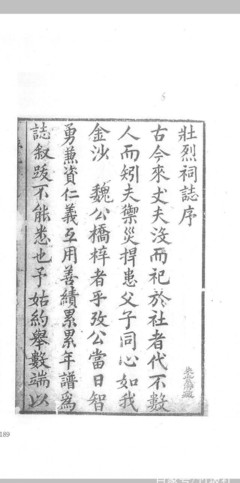 壯烈祠誌序
古今來丈夫沒而祀於社者代不數
人而矧夫禦災捍患父子同心如我
金沙 魏公橋梓者乎攷公當日智
勇兼資仁義互用善績累累年譜爲
誌敘跋不能悉也予姑約舉數端以
189